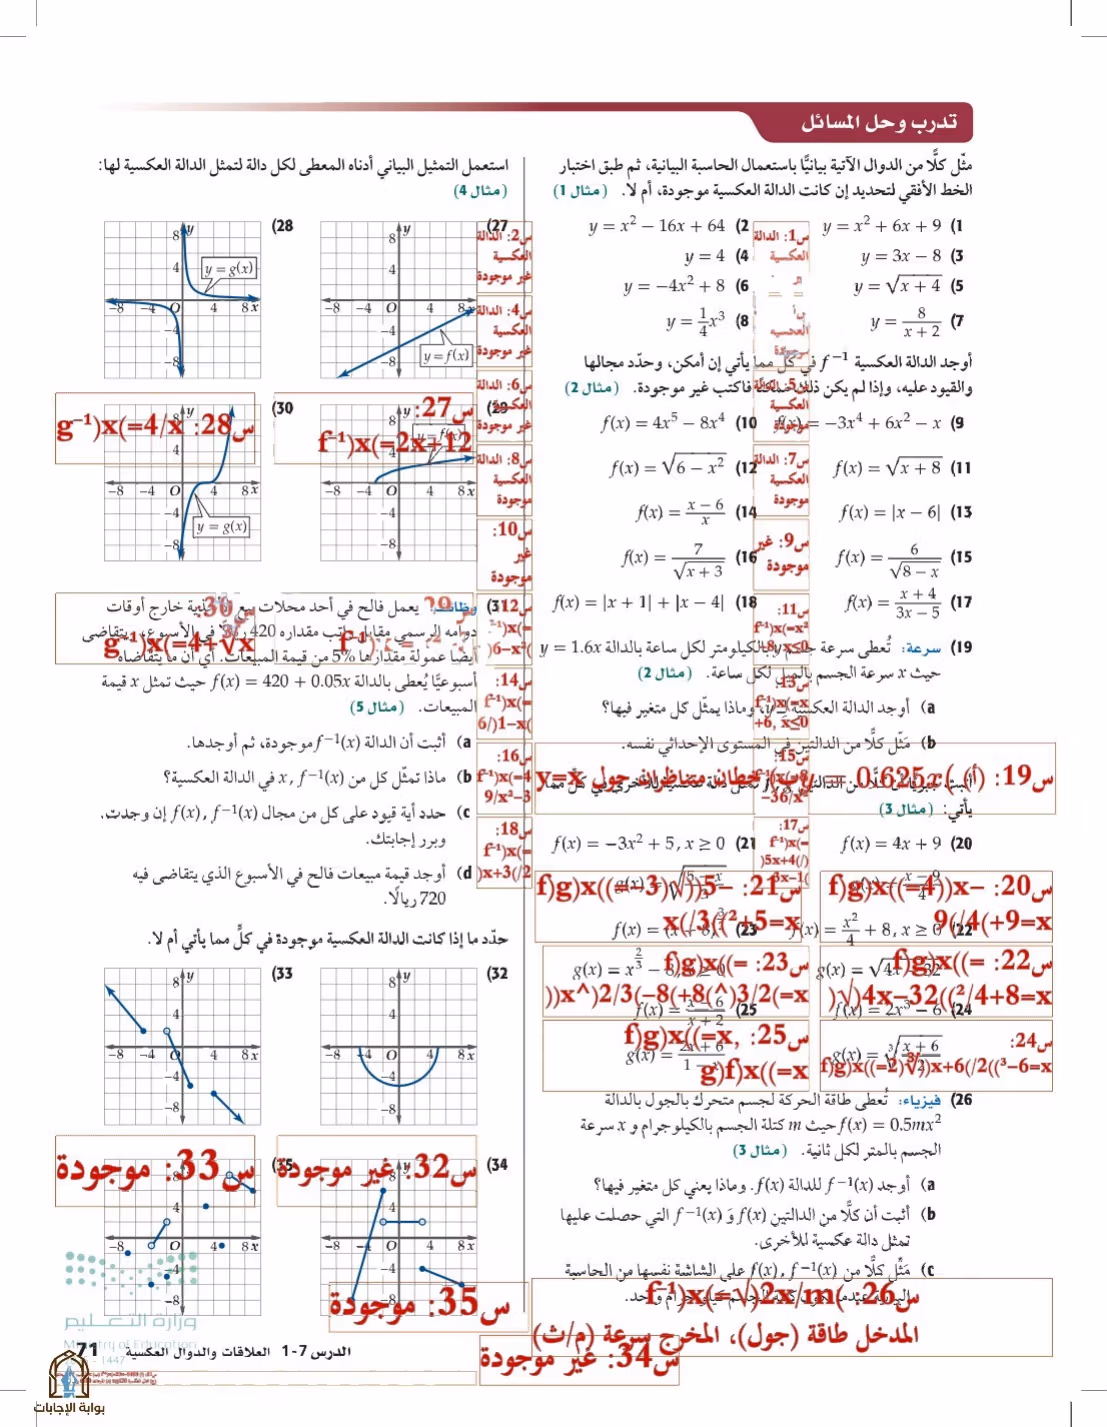 تدرب وحل المسائل
مثّل كلًّا من الدوال الآتية بيانيًّا باستعمال الحاسبة البيانية، ثم طبق اختبار
الخط الأفقي لتحديد إن كانت الدالة العكسية موجودة، أم لا. (مثال 1)
(1 y = x² + 6x + 9
(2 y = x² − 16x + 64
(3 y = 3x − 8
(4 y = 4
(5 y = √(x + 4)
(6 y = −4x² + 8
(7 y = 8/(x + 2)
(8 y = 1/4 x³
س1: الدالة العكسية
أوجد الدالة العكسية f⁻¹ في كل مما يأتي إن أمكن، وحدّد مجالها
والقيود عليه، وإذا لم يكن ذلك ممكنًا فاكتب غير موجودة. (مثال 2)
(9 f(x) = −3x⁴ + 6x² − x
(10 f(x) = 4x⁵ − 8x⁴
(11 f(x) = √(x + 8)
(12 f(x) = √(6 − x²)
(13 f(x) = |x − 6|
(14 f(x) = (x − 6)/x
(15 f(x) = 6/√(8 − x)
(16 f(x) = 7/√(x + 3)
(17 f(x) = (x + 4)/(3x − 5)
(18 f(x) = |x + 1| + |x − 4|
س5: الدالة العكسية موجودة
س7: الدالة العكسية موجودة
س9: غير موجودة
س11:
س13:
س15:
س17:
(19 سرعة: تُعطى سرعة جسم y بالكيلومتر لكل ساعة بالدالة y = 1.6x
حيث x سرعة الجسم بالميل لكل ساعة. (مثال 2)
(a أوجد الدالة العكسية وماذا يمثّل كل متغير فيها؟
(b مثّل كلًّا من الدالتين في المستوى الإحداثي نفسه.
س19: (أ) y = 0.625x (ب) خطان متناظران حول y=x
يأتي: (مثال 3)
(20 f(x) = 4x + 9
(21 f(x) = −3x² + 5, x ≥ 0
س20: f)g)x((=4))x−9(/4(+9=x
س21: f)g)x((=−3)√))5−x(/3((²+5=x
(22 f(x) = x²/4 + 8, x ≥ 0
(23
س22: f)g)x((=)√)4x−32((²/4+8=x
س23: f)g)x((=))x^)2/3(−8(+8(^)3/2(=x
(24 f(x) = 2x³ − 6
(25 f(x) = (x − 6)/(x + 2)
س24: f)g)x((=2)³√))x+6(/2((³−6=x
س25: f)g)x((=x, g)f)x((=x
(26 فيزياء: تُعطى طاقة الحركة لجسم متحرك بالجول بالدالة
f(x) = 0.5mx² حيث m كتلة الجسم بالكيلوجرام و x سرعة
الجسم بالمتر لكل ثانية. (مثال 3)
(a أوجد f⁻¹(x) للدالة f(x). وماذا يعني كل متغير فيها؟
(b أثبت أن كلًّا من الدالتين f(x) وَ f⁻¹(x) التي حصلت عليها
تمثل دالة عكسية للأخرى.
(c مَثّل كلًّا من f(x), f⁻¹(x) على الشاشة نفسها من الحاسبة
س26: f⁻¹)x(=√)2x/m(
المدخل طاقة (جول)، المخرج سرعة (م/ث)
استعمل التمثيل البياني أدناه المعطى لكل دالة لتمثل الدالة العكسية لها:
(مثال 4)
(27 y = f(x)
(28 y = g(x)
س2: الدالة العكسية غير موجودة
س4: الدالة العكسية غير موجودة
س6: الدالة العكسية غير موجودة
س8: الدالة العكسية موجودة
س10: غير موجودة
س27: f⁻¹)x(=2x+12
س28: g⁻¹)x(=4/x
(29
(30 y = g(x)
س30: g⁻¹)x(=4+√x
س14: f⁻¹)x(=6/)1−x(
س16: f⁻¹)x(=49/x²−3
س18: f⁻¹)x(=)x+3(/2
(31 وظائف: يعمل فالح في أحد محلات بيع الأحذية خارج أوقات
دوامه الرسمي مقابل راتب مقداره 420 ريالًا في الأسبوع، ويتقاضى
أيضًا عمولة مقدارها 5% من قيمة المبيعات. أي أن ما يتقاضاه
أسبوعيًّا يُعطى بالدالة f(x) = 420 + 0.05x حيث تمثل x قيمة
المبيعات. (مثال 5)
(a أثبت أن الدالة f⁻¹(x) موجودة، ثم أوجدها.
(b ماذا تمثّل كل من x, f⁻¹(x) في الدالة العكسية؟
(c حدد أية قيود على كل من مجال f(x), f⁻¹(x) إن وجدت.
وبرر إجابتك.
(d أوجد قيمة مبيعات فالح في الأسبوع الذي يتقاضى فيه
720 ريالًا.
حدّد ما إذا كانت الدالة العكسية موجودة في كلٍّ مما يأتي أم لا.
(32
(33
س32: غير موجودة
س33: موجودة
(34
(35
س35: موجودة
س34: غير موجودة
وزارة التعليم
Ministry of Education
1447
الدرس 7-1 العلاقات والدوال العكسية 71
بوابة الإجابات